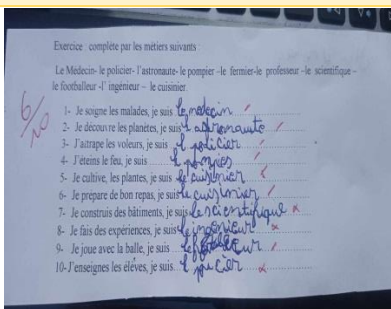 Exercice complète par les métiers suivants
Le Médecin- le policier- l'astronaute- le pompier -le fermier-le professeur -le scientifique –
le footballeur -l' ingénieur – le cuisinier
6/10
1- Je soigne les malades, je suis le médecin
2- Je découvre les planètes, je suis l'astronaute
3- J'attrape les voleurs, je suis le policier
4- J'éteins le feu, je suis
5- Je cultive, les plantes, je suis le cuisinier
6- Je prépare de bon repas, je suis le cuisinier
7- Je construis des bâtiments, je suis le scientifique
8- Je fais des expériences, je suis le ingénieur
9- Je joue avec la balle, je suis
10-J'enseignes les élèves, je suis